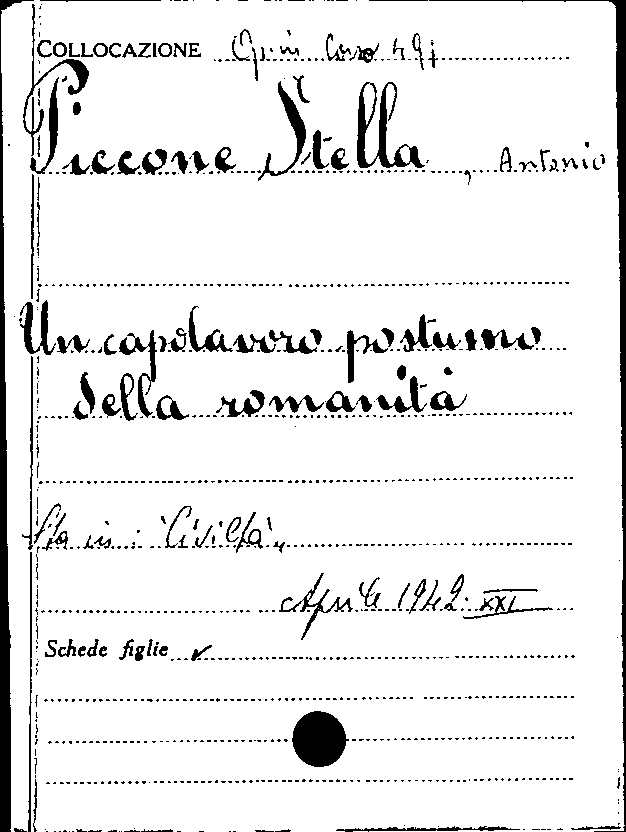 COLLOCAZIONE Op. in Corso 491
Piccone Stella, Antonio
Un capolavoro postumo
della romanità
Sta in: "Civiltà",
Aprile 1942. XXI
Schede figlie ✓